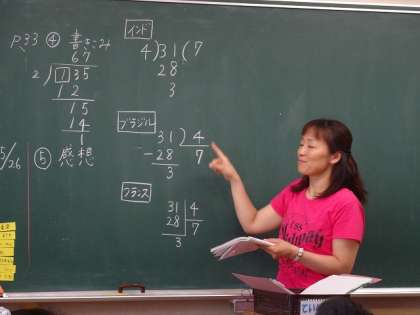 P.33 ④ 書きこみ
67
2)135
12
15
14
1
5/26 ⑤ 感想
インド
4)31(7
28
3
ブラジル
31)4
-28 7
3
フランス
31 4
28 7
3